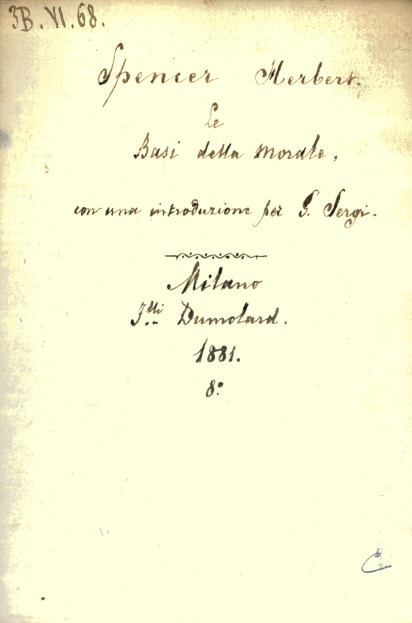 3B.VI.68.
Spencer Herbert.
Le
Basi della morale,
con una introduzione per G. Sergi.
Milano
F.lli Dumolard.
1881.
8.°